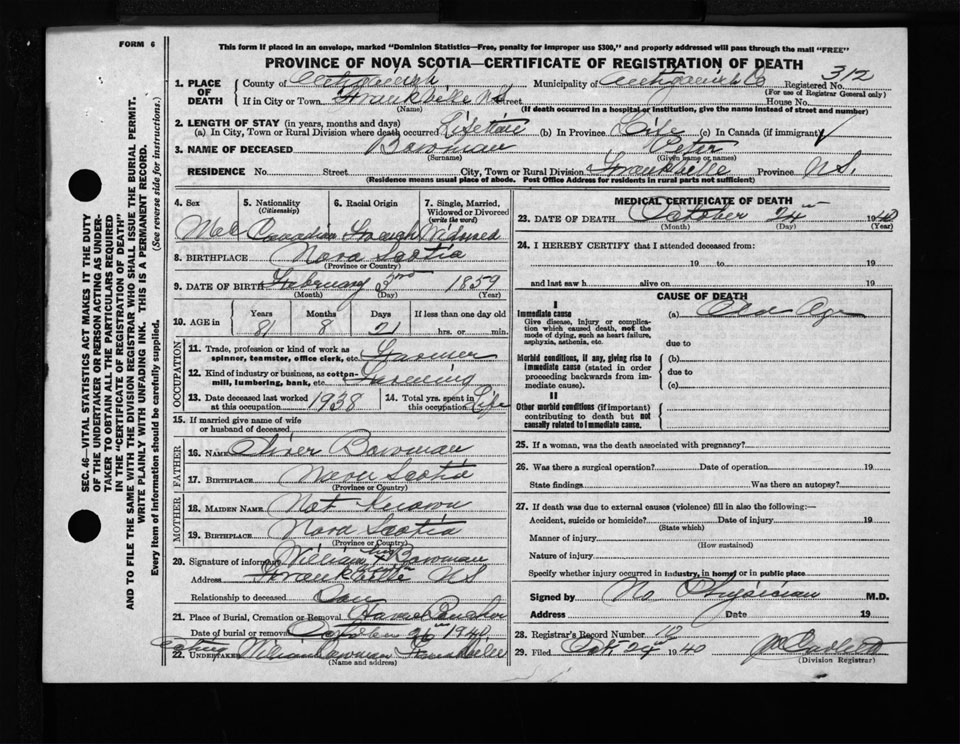 FORM 6
This form if placed in an envelope, marked "Dominion Statistics—Free, penalty for improper use $300," and properly addressed will pass through the mail "FREE"
PROVINCE OF NOVA SCOTIA—CERTIFICATE OF REGISTRATION OF DEATH
SEC. 46—VITAL STATISTICS ACT MAKES IT THE DUTY
OF THE UNDERTAKER OR PERSON ACTING AS UNDER-
TAKER TO OBTAIN ALL THE PARTICULARS REQUIRED
IN THE "CERTIFICATE OF REGISTRATION OF DEATH"
AND TO FILE THE SAME WITH THE DIVISION REGISTRAR WHO SHALL ISSUE THE BURIAL PERMIT.
WRITE PLAINLY WITH UNFADING INK. THIS IS A PERMANENT RECORD.
Every item of information should be carefully supplied. (See reverse side for instructions.)
1. PLACE OF DEATH County of Antigonish Municipality of Antigonish Co Registered No. 312
(For use of Registrar General only)
If in City or Town Frankville NS Street House No.
(Name) (If death occurred in a hospital or institution, give the name instead of street and number)
2. LENGTH OF STAY (in years, months and days)
(a) In City, Town or Rural Division where death occurred Lifetime (b) In Province Life (c) In Canada (if immigrant)
3. NAME OF DECEASED Bowman Peter
(Surname) (Given name or names)
RESIDENCE No. Street City, Town or Rural Division Frankville Province NS.
(Residence means usual place of abode. Post Office Address for residents in rural parts not sufficient)
4. Sex 5. Nationality (Citizenship) 6. Racial Origin 7. Single, Married, Widowed or Divorced (write the word)
Mal Canadian French Widowed
8. BIRTHPLACE Nova Scotia
(Province or Country)
9. DATE OF BIRTH February 3rd 1859
(Month) (Day) (Year)
10. AGE in Years Months Days If less than one day old
81 8 21 hrs. or min.
OCCUPATION
11. Trade, profession or kind of work as spinner, teamster, office clerk, etc. Farmer
12. Kind of industry or business, as cotton-mill, lumbering, bank, etc. Farming
13. Date deceased last worked at this occupation 1938 14. Total yrs. spent in this occupation Life
15. If married give name of wife or husband of deceased
FATHER
16. NAME Oliver Bowman
17. BIRTHPLACE Nova Scotia
(Province or Country)
MOTHER
18. MAIDEN NAME Not Known
19. BIRTHPLACE Nova Scotia
(Province or Country)
20. Signature of informant William X Bowman
Address Frankville NS
Relationship to deceased Son
21. Place of Burial, Cremation or Removal Havre Boucher
Date of burial or removal October 26th 1940
Acting
22. UNDERTAKER William Bowman Frankville
(Name and address)
MEDICAL CERTIFICATE OF DEATH
23. DATE OF DEATH October 24th 1940
(Month) (Day) (Year)
24. I HEREBY CERTIFY that I attended deceased from:
19 to 19
and last saw h alive on 19
CAUSE OF DEATH
I
Immediate cause (a) Old Age
Give disease, injury or complication which caused death, not the mode of dying, such as heart failure, asphyxia, asthenia, etc.
due to
Morbid conditions, if any, giving rise to immediate cause (stated in order proceeding backwards from immediate cause). (b)
due to
(c)
II
Other morbid conditions (if important) contributing to death but not causally related to immediate cause.
25. If a woman, was the death associated with pregnancy?
26. Was there a surgical operation? Date of operation 19
State findings Was there an autopsy?
27. If death was due to external causes (violence) fill in also the following:—
Accident, suicide or homicide? Date of injury 19
(State which)
Manner of injury
(How sustained)
Nature of injury
Specify whether injury occurred in industry, in home, or in public place
Signed by No Physician M.D.
Address Date 19
28. Registrar's Record Number 12
29. Filed Oct 24 1940
(Division Registrar)